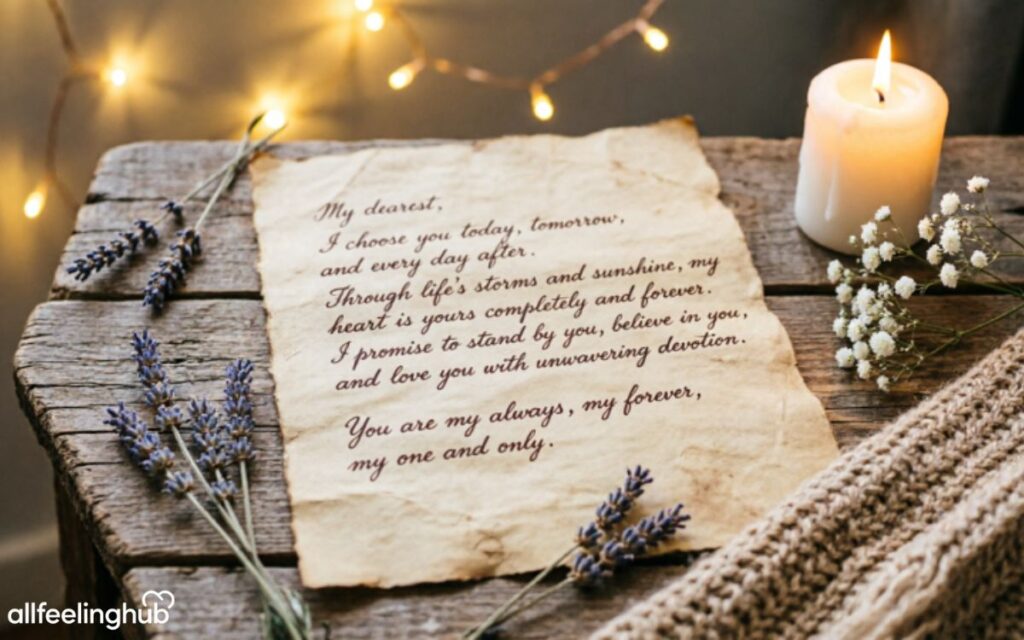 My dearest,
I choose you today, tomorrow,
and every day after.
Through life's storms and sunshine, my
heart is yours completely and forever.
I promise to stand by you, believe in you,
and love you with unwavering devotion.
You are my always, my forever,
my one and only.
allfeelinghub